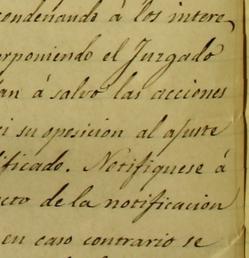 condenando á los intere
rponiendo el Juzgado
an á salvo las acciones
i su oposicion al ajuste
ificado. Notifiquese á
cto de la notificacion
en caso contrario se